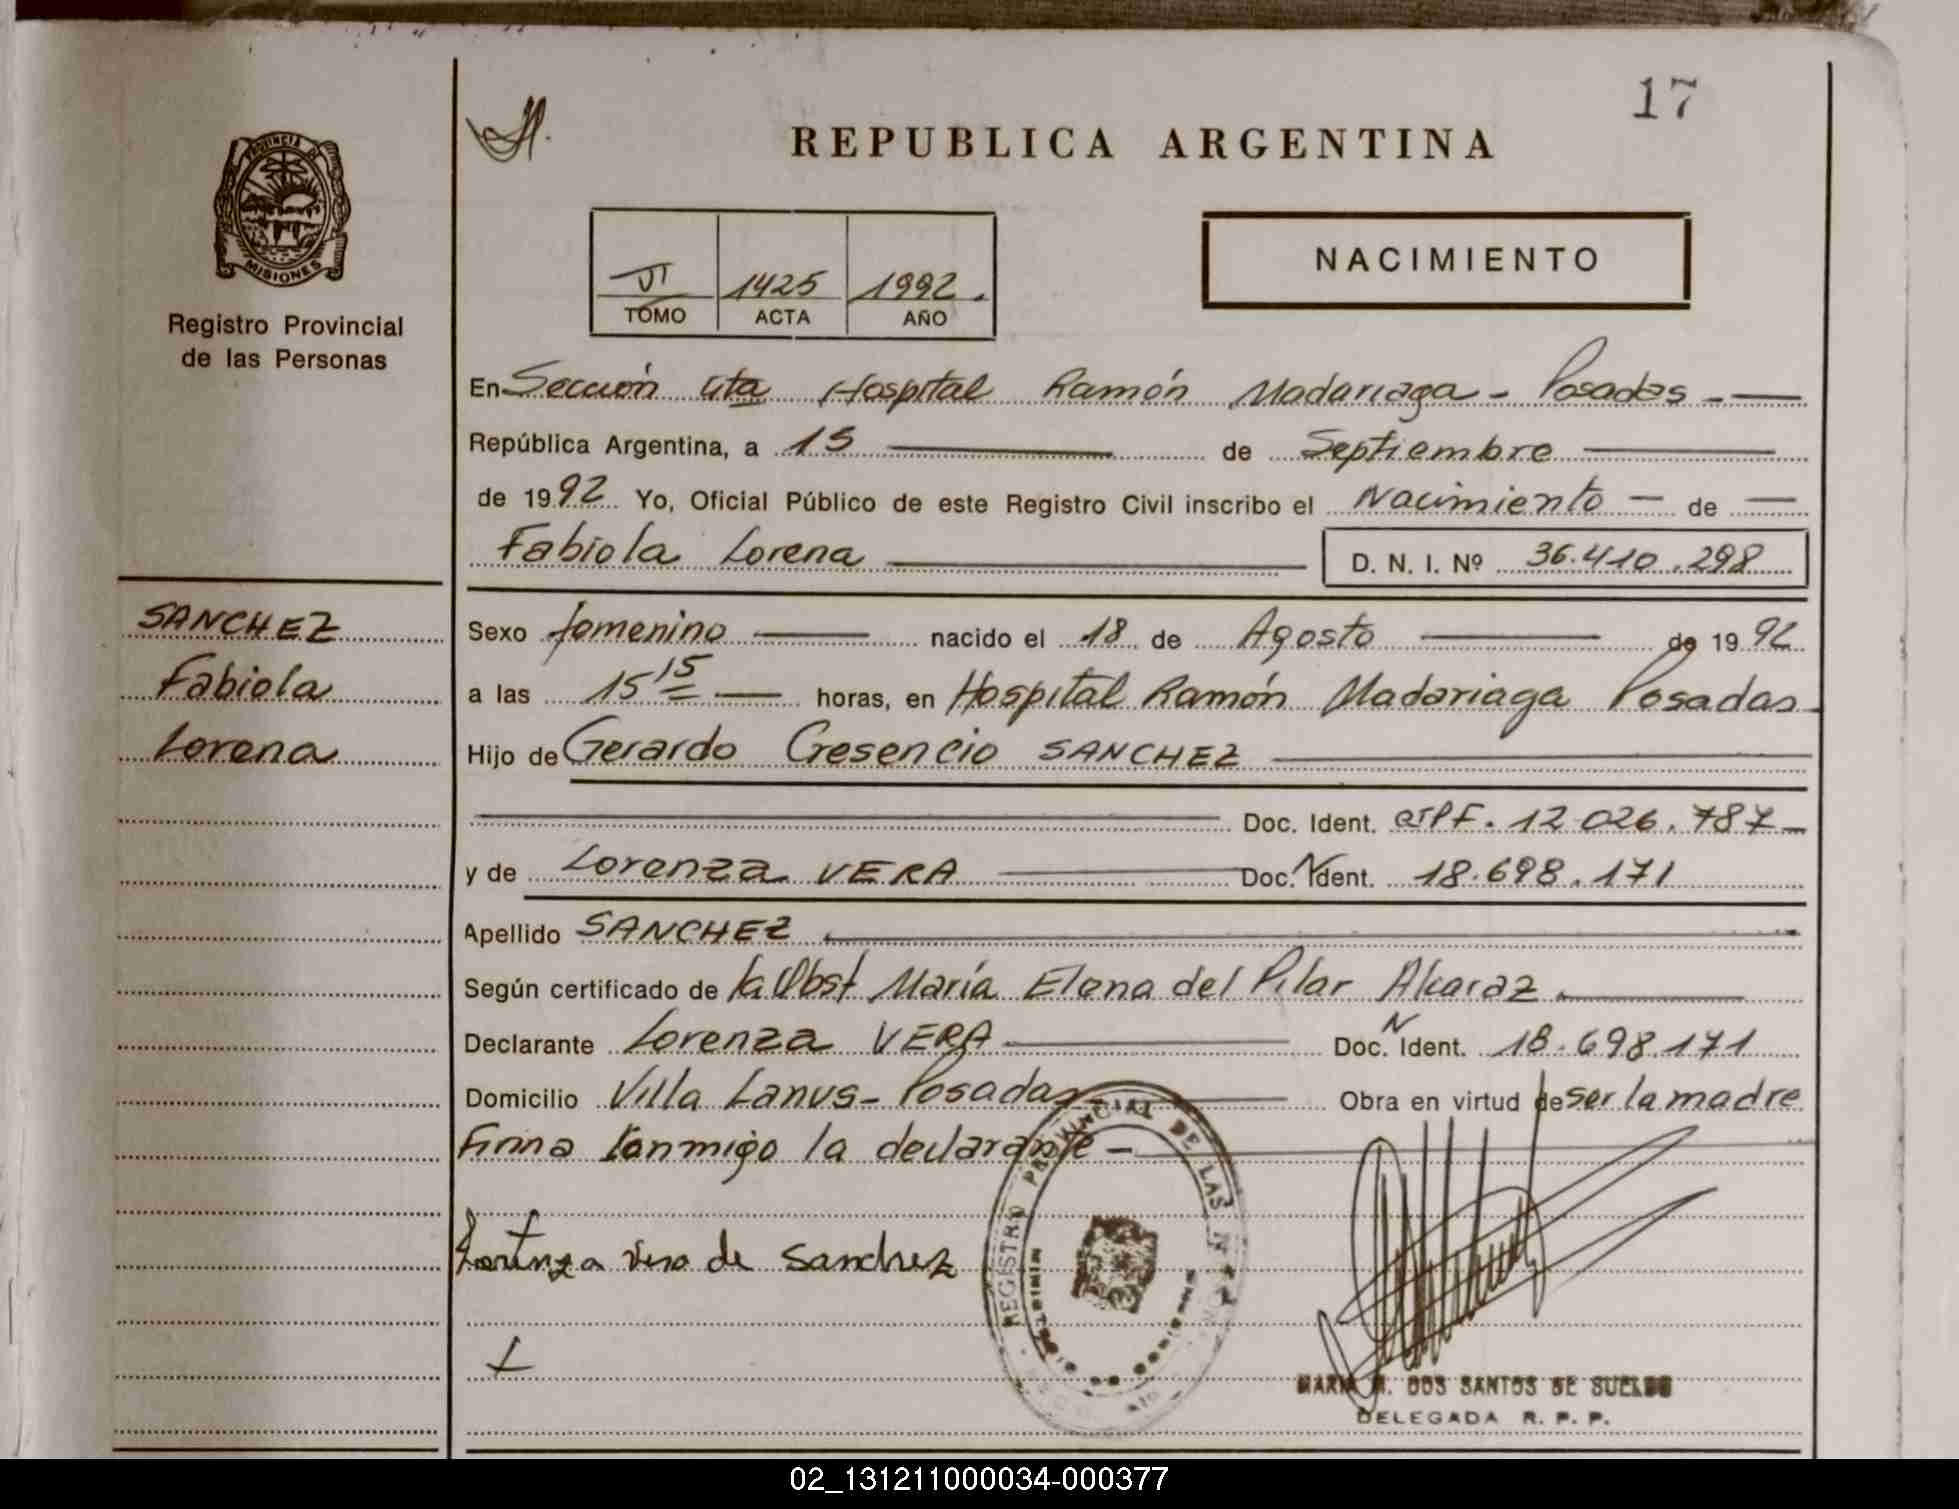 17
REPUBLICA ARGENTINA
PROVINCIA DE
MISIONES
Registro Provincial
de las Personas
VI 1425 1992.
TOMO ACTA AÑO
NACIMIENTO
En Sección 4ta Hospital Ramón Madariaga - Posadas -
República Argentina, a 15 de Septiembre
de 1992 Yo, Oficial Público de este Registro Civil inscribo el Nacimiento - de
Fabiola Lorena D. N. I. Nº 36.410.298
SANCHEZ
Fabiola
Lorena
Sexo femenino nacido el 18 de Agosto de 1992
a las 15 15 horas, en Hospital Ramón Madariaga Posadas
Hijo de Gerardo Cresencio SANCHEZ
Doc. Ident. 12.026.787
y de Lorenza VERA Doc. N Ident. 18.698.171
Apellido SANCHEZ
Según certificado de la Obst María Elena del Pilar Alcaraz
Declarante Lorenza VERA Doc. N Ident. 18.698.171
Domicilio Villa Lanus - Posadas Obra en virtud de ser la madre
Firma conmigo la declarante -
Lorenza vera de Sanchez
REGISTRO PROVINCIAL DE LAS
MARIA DOS SANTOS DE SUELDO
DELEGADA R. P. P.
02_131211000034-000377